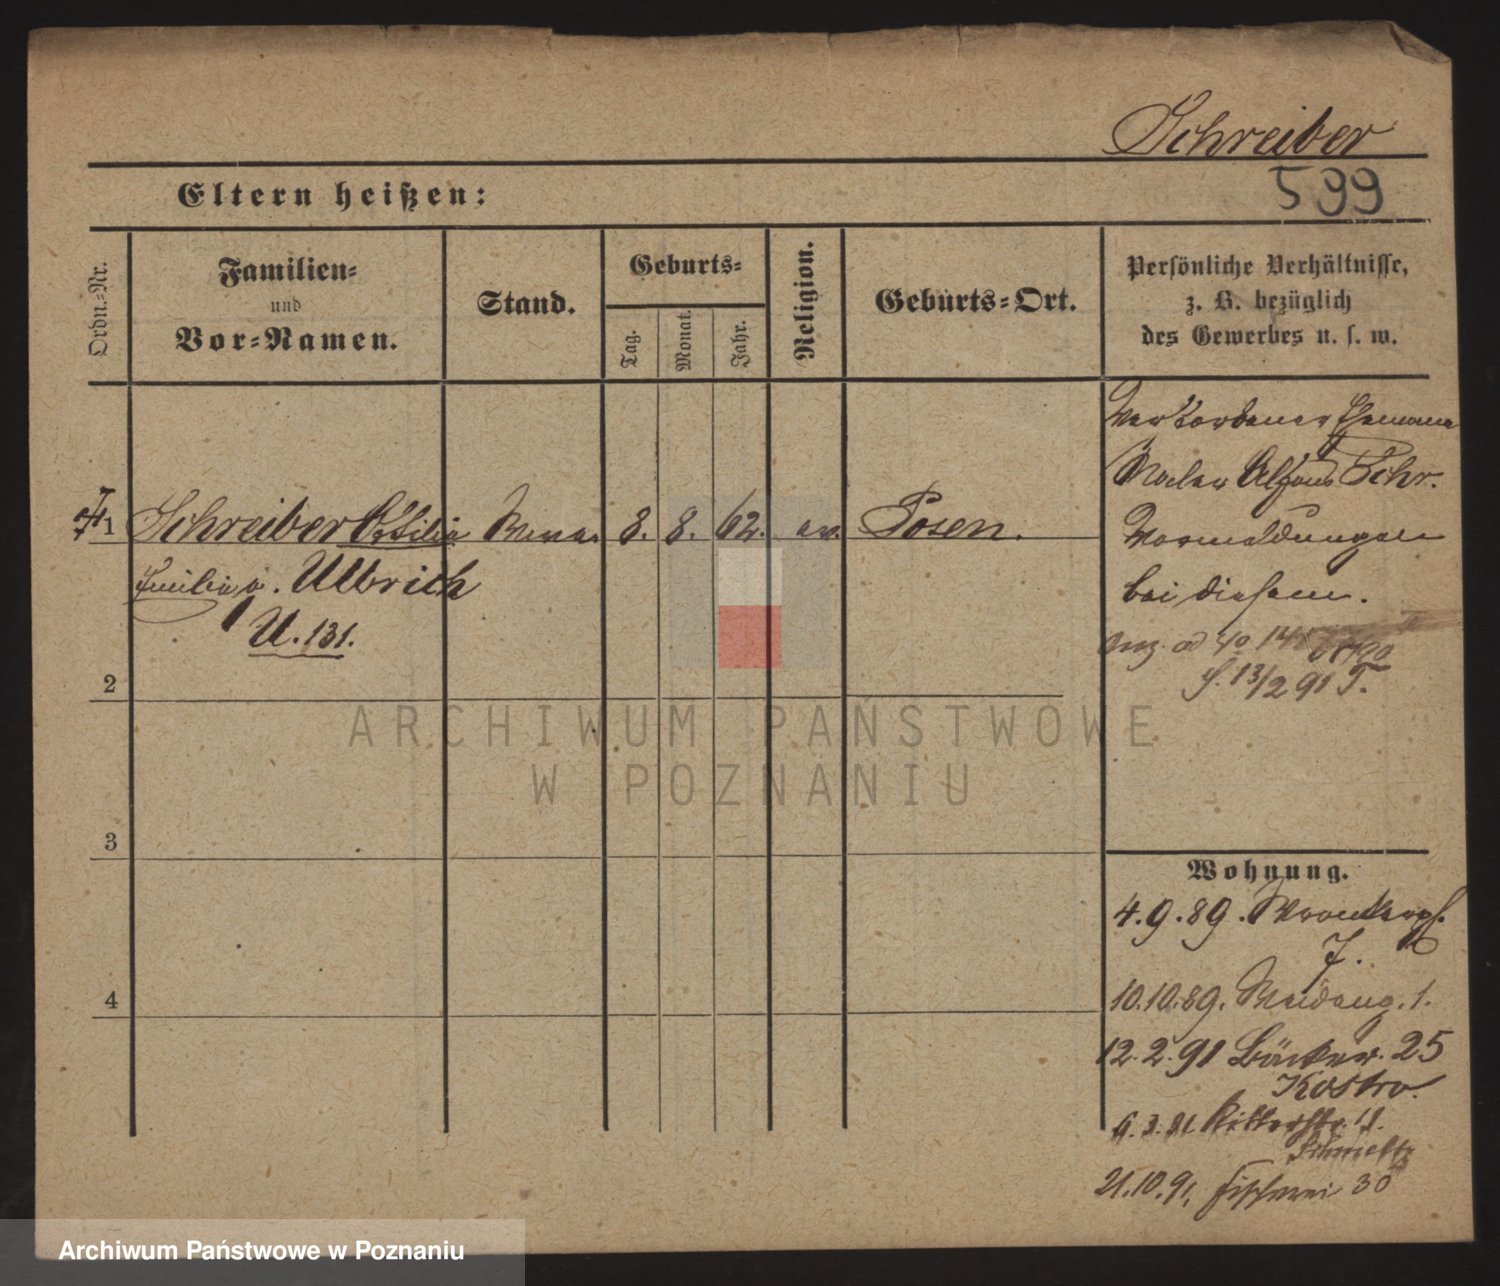 Schreiber
599
Eltern heißen:
Ordn.-Nr.
Familien-
und
Vor-Namen.
Stand.
Geburts-
Tag.
Monat.
Jahr.
Religion.
Geburts-Ort.
Persönliche Verhältnisse,
z. B. bezüglich
des Gewerbes u. s. w.
Verstorbener Ehemann
Maler Alfons Schr.
Vormeldungen
bei diesem.
S. 13/2 91 T.
1 Schreiber Ottilie Wwe. 8. 8. 62. ev. Posen.
Emilie g. Ulbrich
U. 131.
2
3
4
ARCHIWUM PAŃSTWOWE
W POZNANIU
Wohnung.
4.9.89. Wronkerpl.
7.
10.10.89. 1.
12.2.91 Bäcker. 25
Kostro.
6.3.91 Ritterstr. 18.
Schmeltz
21.10.91. Fischerei 30
Archiwum Państwowe w Poznaniu